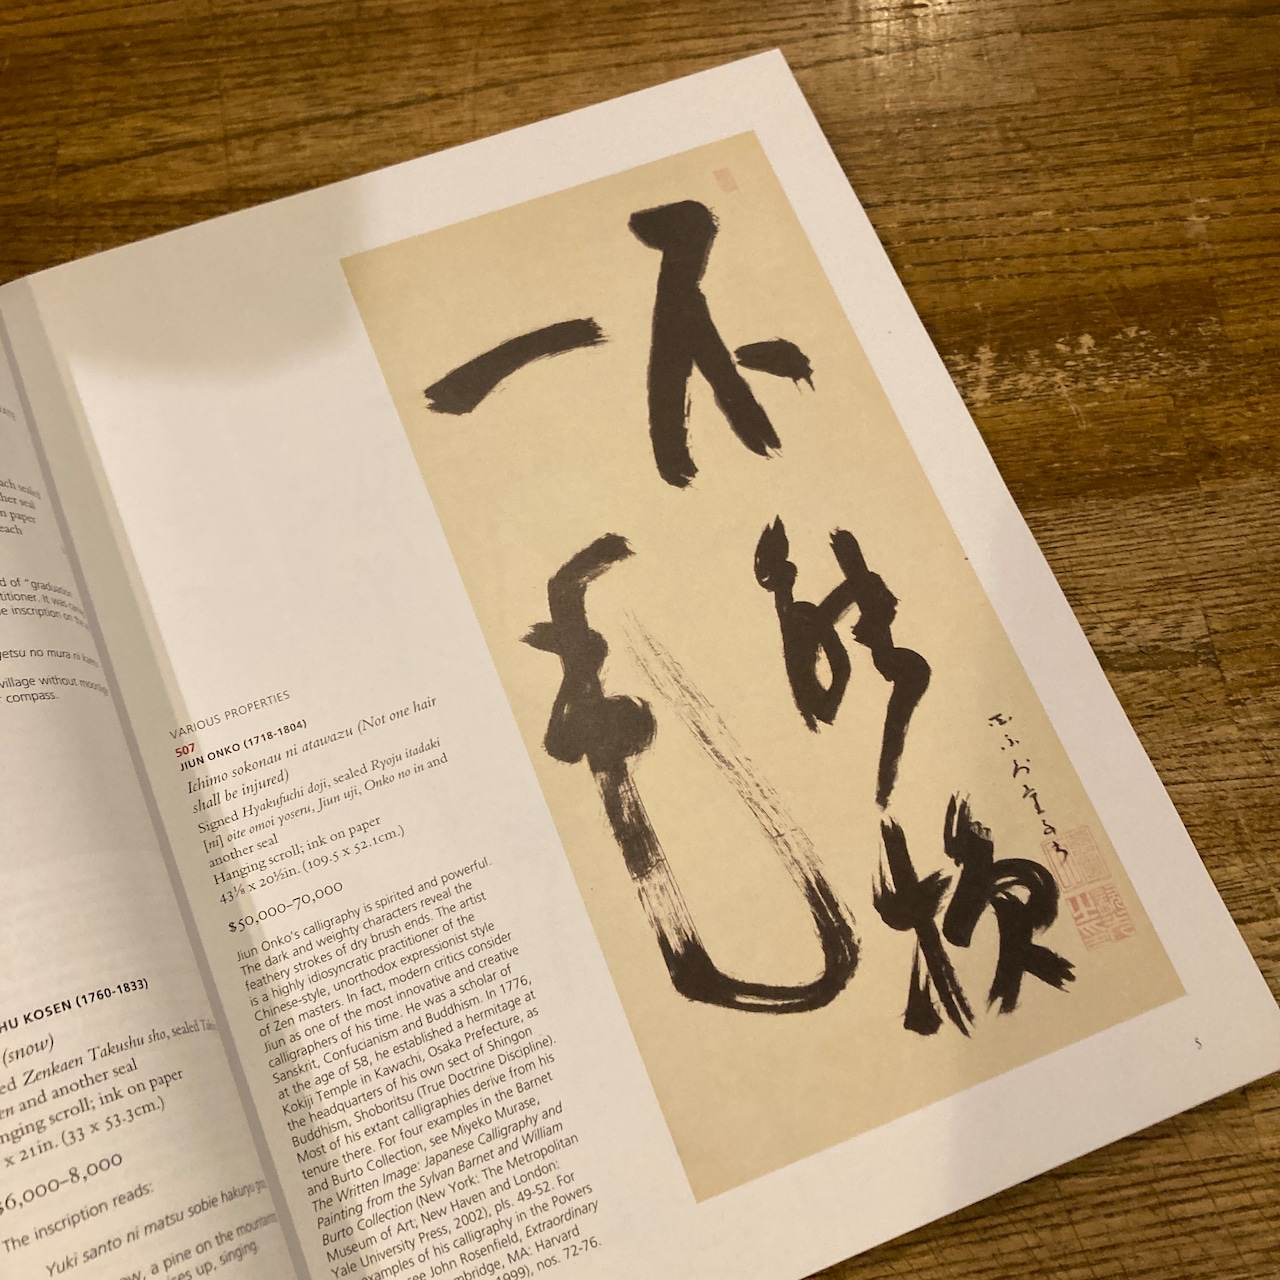 ach sealed
her seal
n paper
each
d of "graduation
titioner. It was
e inscription on the
getsu no mura ni
village without moonlight
compass.
HU KOSEN (1760-1833)
(snow)
ed Zenkaen Takushu sho, sealed
en and another seal
nging scroll; ink on paper
x 21in. (33 x 53.3cm.)
$6,000–8,000
The inscription reads:
Yuki santo ni matsu sobie hakuryu
ow, a pine on the mountain
ses up, singing.
VARIOUS PROPERTIES
507
JIUN ONKO (1718-1804)
Ichimo sokonau ni atawazu (Not one hair
shall be injured)
Signed Hyakufuchi doji, sealed Ryoju itadaki
[ni] oite omoi yoseru, Jiun uji, Onko no in and
another seal
Hanging scroll; ink on paper
43⅛ x 20½in. (109.5 x 52.1cm.)
$50,000–70,000
Jiun Onko's calligraphy is spirited and powerful.
The dark and weighty characters reveal the
feathery strokes of dry brush ends. The artist
is a highly idiosyncratic practitioner of the
Chinese-style, unorthodox expressionist style
of Zen masters. In fact, modern critics consider
Jiun as one of the most innovative and creative
calligraphers of his time. He was a scholar of
Sanskrit, Confucianism and Buddhism. In 1776,
at the age of 58, he established a hermitage at
Kokiji Temple in Kawachi, Osaka Prefecture, as
the headquarters of his own sect of Shingon
Buddhism, Shoboritsu (True Doctrine Discipline).
Most of his extant calligraphies derive from his
tenure there. For four examples in the Barnet
and Burto Collection, see Miyeko Murase,
The Written Image: Japanese Calligraphy and
Painting from the Sylvan Barnet and William
Burto Collection (New York: The Metropolitan
Museum of Art; New Haven and London:
Yale University Press, 2002), pls. 49-52. For
examples of his calligraphy in the Powers
see John Rosenfield, Extraordinary
mbridge, MA: Harvard
1999), nos. 72-76.
不能損
一毛
5